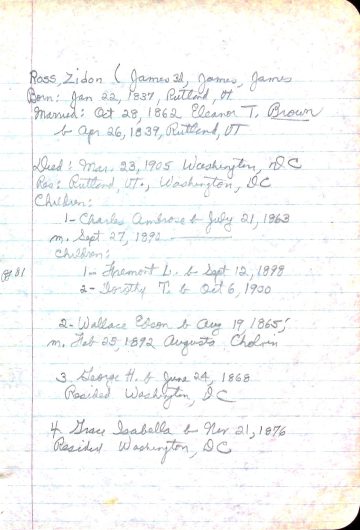 Ross, Zidon ( James 3d, James, James
Born: Jan 22, 1837, Rutland, Vt
Married: Oct 28, 1862 Eleanor T. Brown
b Apr 26, 1839, Rutland, VT
Died: Mar. 23, 1905 Washington, DC
Res: Rutland, Vt., Washington, DC
Children:
1- Charles Ambrose b July 21, 1863
m. Sept 27, 1892
Children:
pg 81 1- Fremont L. b Sept 12, 1898
2- Dorothy T. b Oct 6, 1900
2- Wallace Ebson b Aug 19, 1865;
m. Feb 25, 1892 Augusta Cholvin
3. George H. b June 24, 1868
Resided Washington, DC
4. Grace Isabella b Nov 21, 1876
Resided Washington, DC